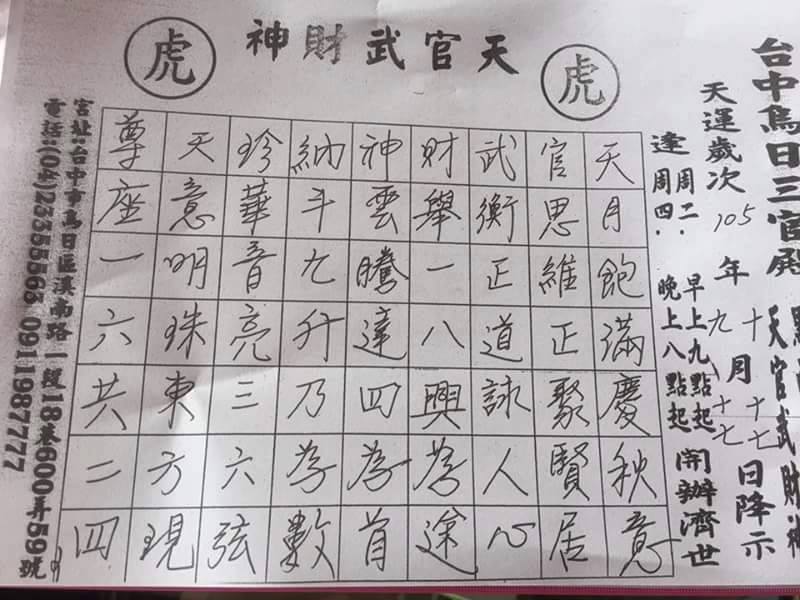 虎 天官武財神 虎
台中烏日三官殿
天官武財神
天運歲次105年十月十七日降示
九 十七
逢周二、周四、早上九點起 晚上八點起 開辦濟世
天月飽滿慶秋意
官思維正聚賢居
武衡正道詠人心
財舉一八興為途
神雲騰達四為首
納斗九升乃為數
珍華音亮三六弦
天意明珠東方現
尊座一六共二四
宮址:台中市烏日區溪南路一段18巷600弄59號
電話:(04)23355563 0911987777